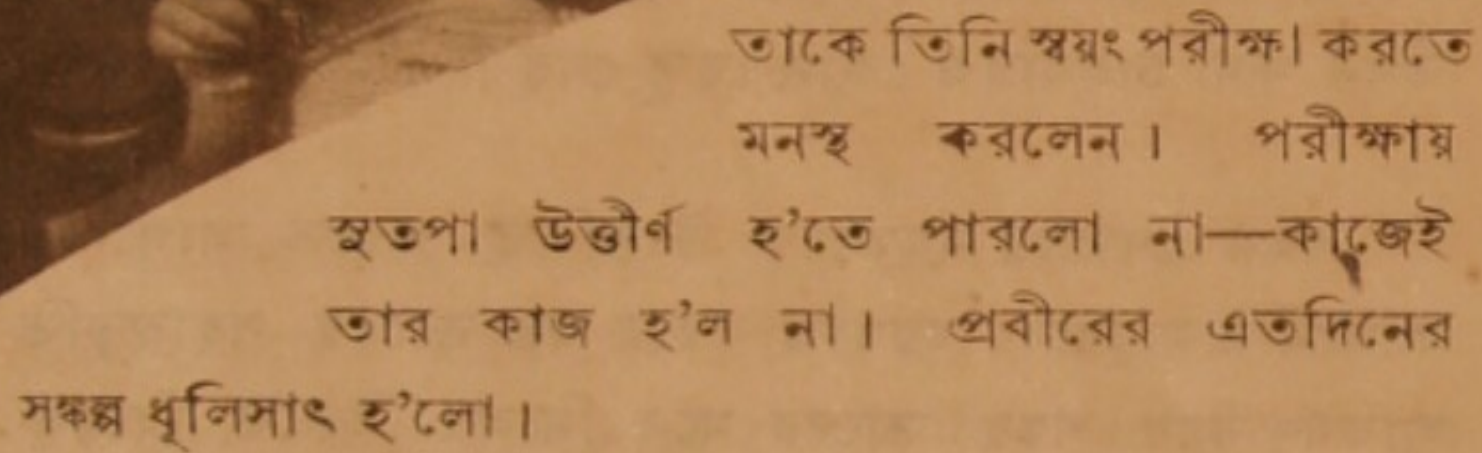 তাকে তিনি স্বয়ং পরীক্ষা করতে
মনস্থ করলেন। পরীক্ষায়
সুতপা উত্তীর্ণ হ’তে পারলো না—কাজেই
তার কাজ হ’ল না। প্রবীরের এতদিনের
সঙ্কল্প ধূলিসাৎ হ’লো।